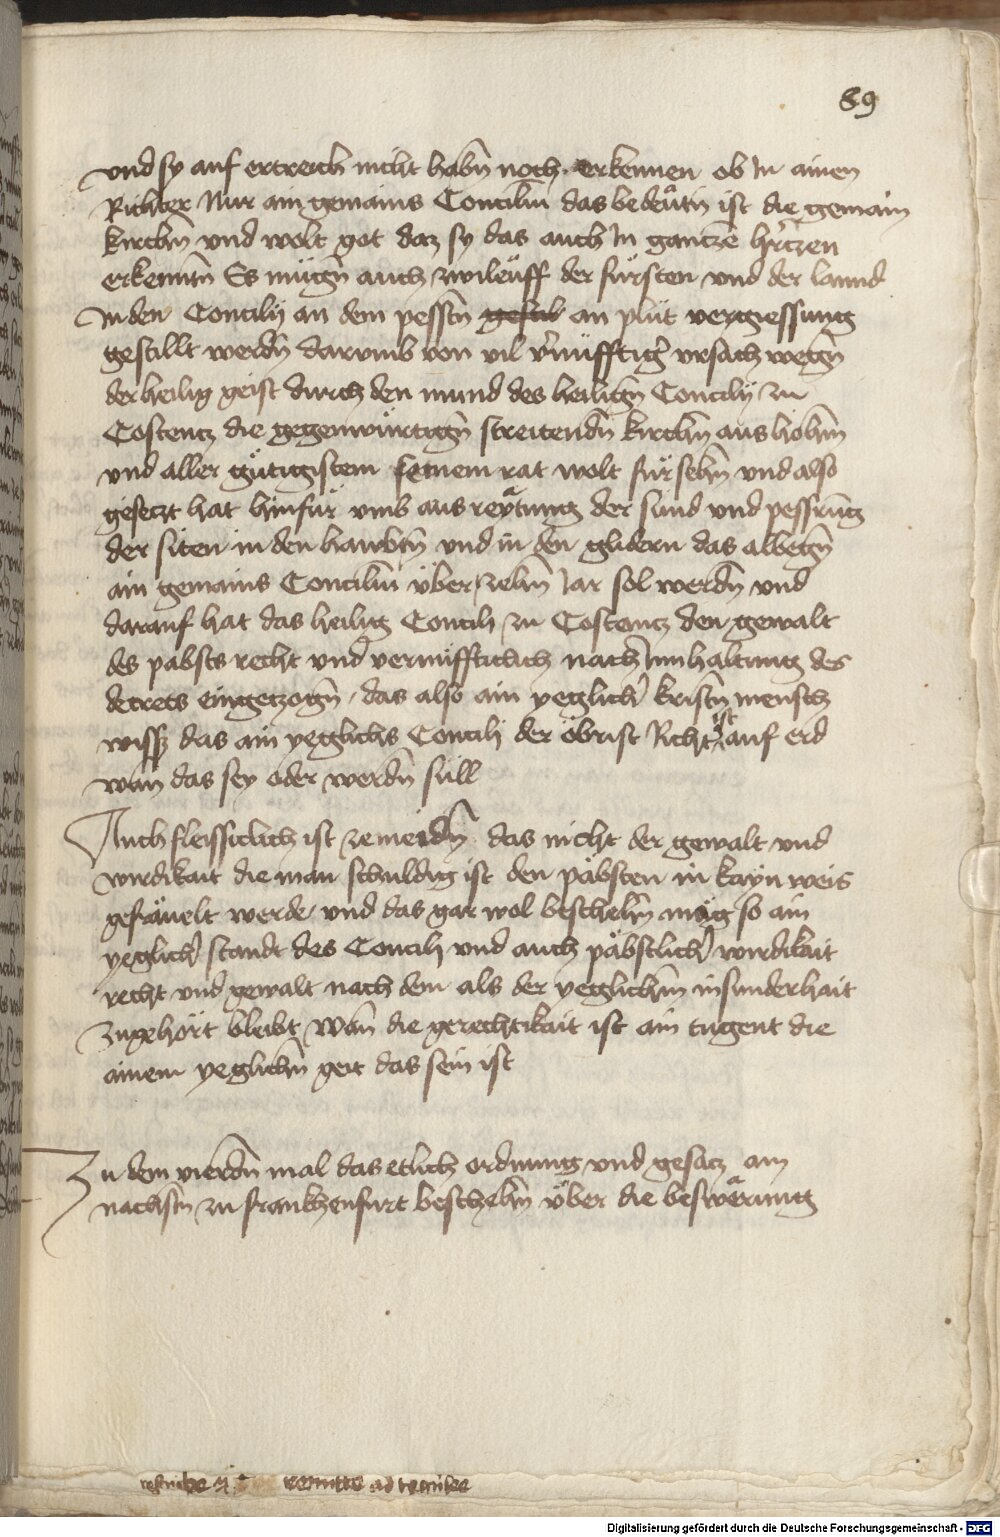 89
vnd sy auf ertreich nicht habn̄ noch erkennen ob In ainen
Richter Nur ain gemains Conciliū das bedeẅtn̄ ist die gemain
kirchn̄ vnd wolt got daz sy das auch In gantzē hertzen
erkenntn̄ Es mügn̄ auch zwileüff der fürsten vnd der lannd
In den Concilÿ an dem pesstn̄ gestil an plüt vergiessung
gestillt werdn̄ darumb von vil v̄nüfftiḡ vrsach wegn̄
der heilig geist durch den mund des heilign̄ Concilÿ zu
Costentz die gegenwürtign̄ streitendn̄ kirchn̄ aus höhm̄
vnd aller gütigistem seinem rat wolt fürsehn̄ vnd also
gesetzt hat hinfür vmb aus reytung der sünd vnd pessrūg
der siten in den hawbtn̄ vnd in den glidern das albegn̄
ain gemains Conciliū über zehn̄ Iar sol werdn̄ vnd
darauf hat das heilig Concilÿ zu Costentz den gewalt
des pabsts recht vnd vernüfftiklich nach Innhaltung des
decrets eingetzogn̄ das also ain yeglich̄ kristn̄ mensch
wissz das ain yeglichs Concilÿ der öbrist Richt̄ ist auf erd
wān das sey oder werdn̄ süll
Auch fleissiclich ist zemeidn̄ das nicht der gewalt vnd
wirdikait die man schuldig ist den päbsten in kayn weis
gefräuelt werde vnd das gar wol beschehn̄ mag so ain
yeglich̄ standt des Concilÿ vnd auch päbstlich̄ wirdikait
recht vnd gewalt nach dem als der yeglichm̄ in sunderhait
zugehört bleibt Wān die gerechtikait ist ain tugent die
ainem yeglichn̄ geit das sein ist
Zu dem vierdn̄ mal das etlich ordnung vnd gesatz am
nachstn̄ zu frankhenfurt beschehn̄ über die beswërung
Digitalisierung gefördert durch die Deutsche Forschungsgemeinschaft - DFG